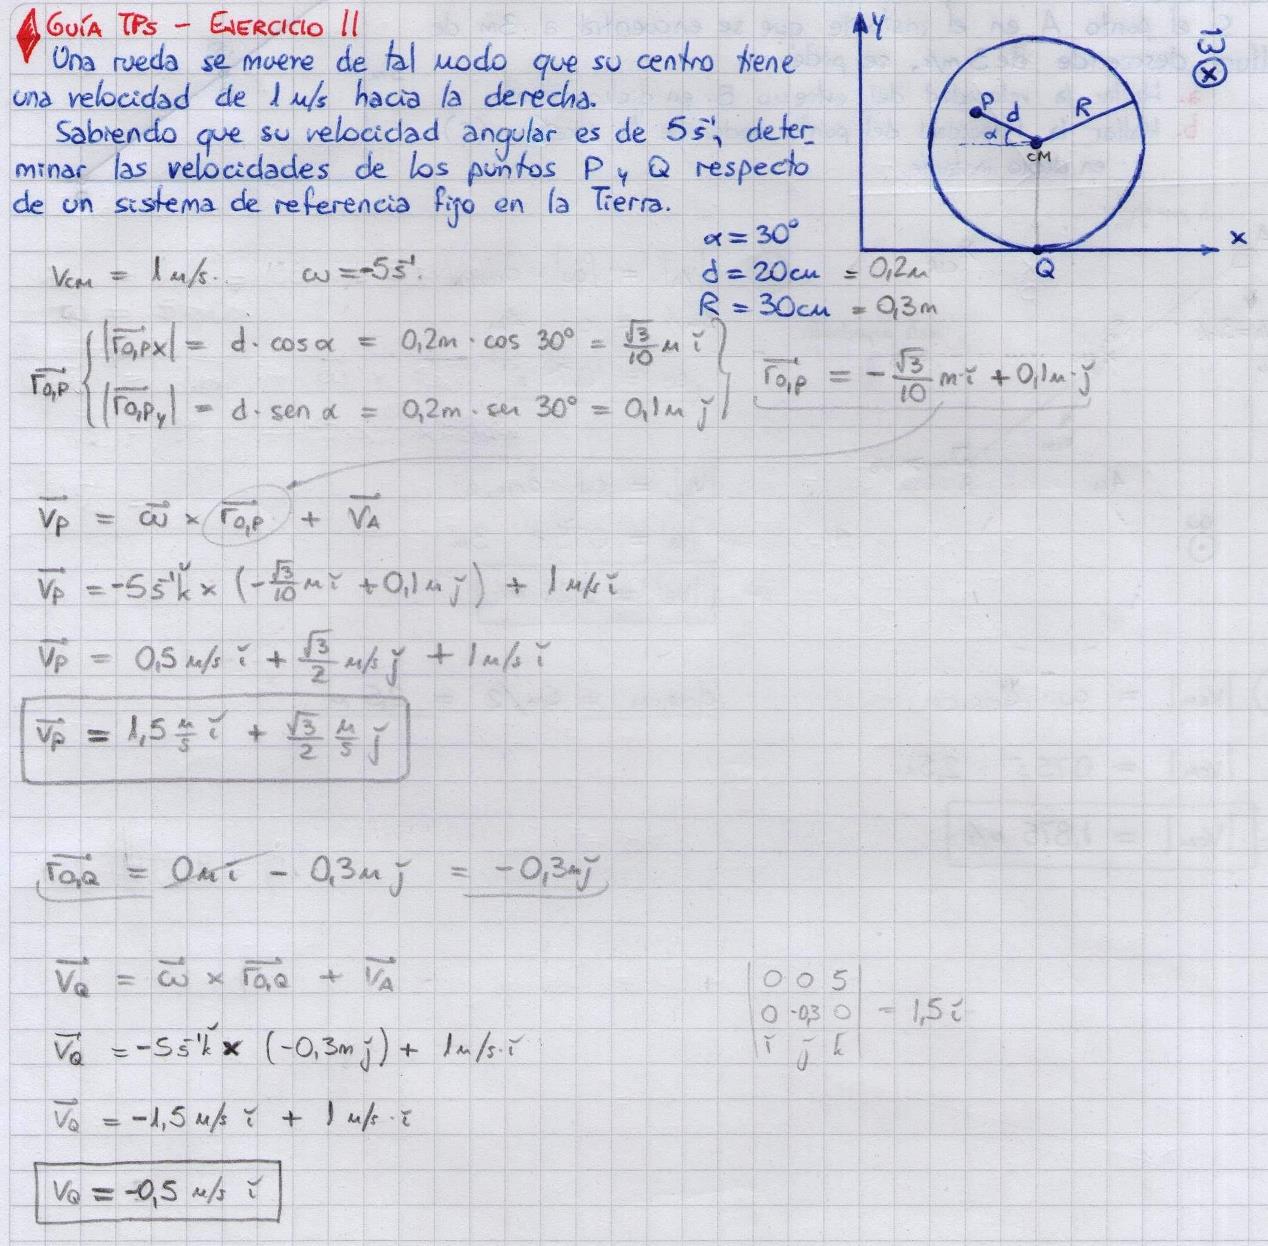 GUÍA TPs - EJERCICIO 11
Una rueda se mueve de tal modo que su centro tiene
una velocidad de 1 m/s hacia la derecha.
Sabiendo que su velocidad angular es de 5 s⁻¹, deter-
minar las velocidades de los puntos P y Q respecto
de un sistema de referencia fijo en la Tierra.
13 (x)
y
P
d
R
α
CM
x
Q
α = 30°
d = 20cm = 0,2m
R = 30cm = 0,3m
Vcm = 1 m/s. ω = -5 s⁻¹.
r⃗o,p { |r⃗o,px| = d · cos α = 0,2m · cos 30° = √3/10 m ǐ
|r⃗o,py| = d · sen α = 0,2m · sen 30° = 0,1m ǰ }
r⃗o,p = -√3/10 m·ǐ + 0,1m·ǰ
V⃗p = ω⃗ × r⃗o,p + V⃗A
V⃗p = -5 s⁻¹ ǩ × (-√3/10 m ǐ + 0,1m ǰ) + 1 m/s ǐ
V⃗p = 0,5 m/s ǐ + √3/2 m/s ǰ + 1 m/s ǐ
V⃗p = 1,5 m/s ǐ + √3/2 m/s ǰ
r⃗o,Q = 0m ǐ - 0,3m ǰ = -0,3m ǰ
V⃗Q = ω⃗ × r⃗o,Q + V⃗A
V⃗Q = -5 s⁻¹ ǩ × (-0,3m ǰ) + 1 m/s·ǐ
V⃗Q = -1,5 m/s ǐ + 1 m/s·ǐ
VQ = -0,5 m/s ǐ
|0 0 5|
|0 -0,3 0| = 1,5 ǐ
|ǐ ǰ ǩ|